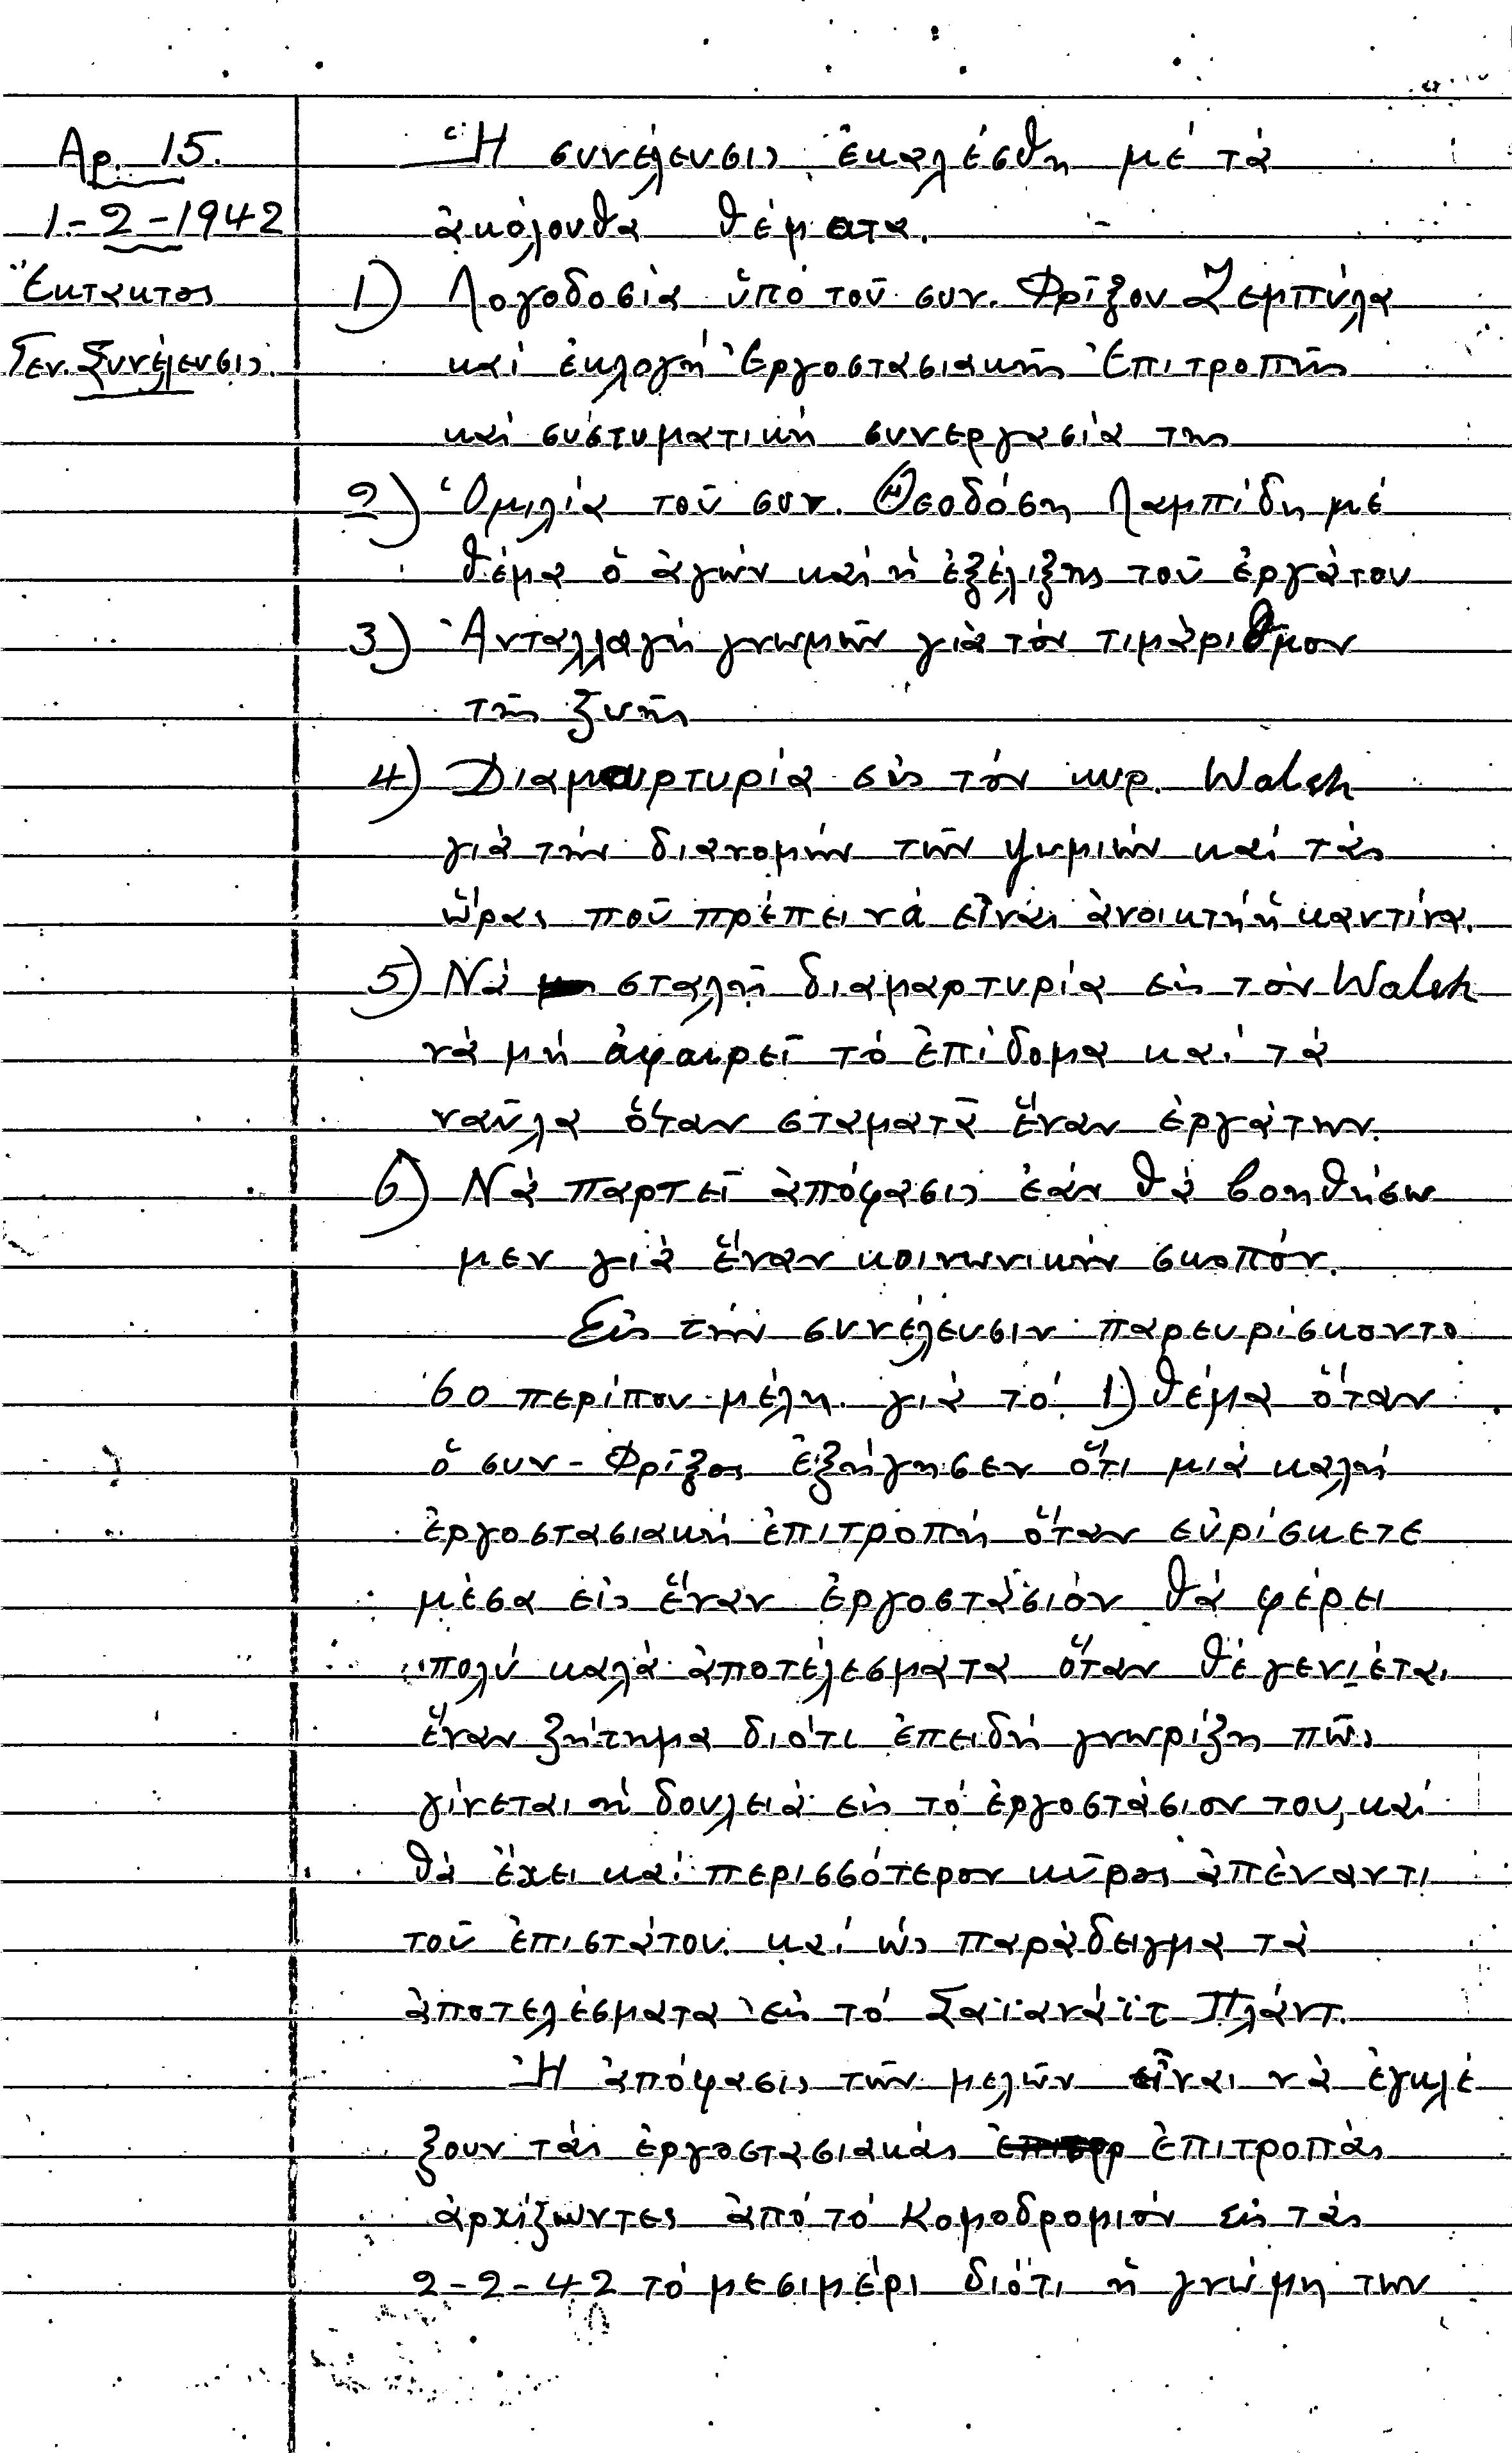 Αρ. 15.
1-2-1942
Ἔκτακτος
Γεν. Συνέλευσις.
Ἡ συνέλευσις ἐκαλέσθη μέ τά
ἀκόλουθα θέματα.
1) Λογοδοσία ὑπό τοῦ συν. Φρίξου Ζεμπύλα
καί ἐκλογή Ἐργοστασιακῆς Ἐπιτροπῆς
καί συστυματική συνεργασία της
2) Ὁμιλία τοῦ συν. Θεοδόση Λαμπίδη μέ
θέμα ὁ ἀγών καί ἡ ἐξέλιξης τοῦ ἐργάτου
3) Ἀνταλλαγή γνωμῶν γιά τόν τιμάριθμον
τῆς ζωῆς
4) Διαμαρτυρία εἰς τόν κυρ. Walsh
γιά τήν διανομήν τῶν ψωμιῶν καί τάς
ὥρας ποῦ πρέπει νά εἶναι ἀνοικτή ἡ καντίνα.
5) Νά σταλῇ διαμαρτυρία εἰς τόν Walsh
νά μή ἀφαιρεῖ τό ἐπίδομα καί τά
ναῦλα ὅταν σταματᾶ ἕναν ἐργάτην.
6) Νά παρτεῖ ἀπόφασις ἐάν θά βοηθήσω
μεν γιά ἕναν κοινωνικήν σκοπόν.
Εἰς τήν συνέλευσιν παρευρίσκοντο
60 περίπου μέλη. γιά τό 1) θέμα ὅταν
ὁ συν - Φρίξος ἐξήγησεν ὅτι μιά καλή
ἐργοστασιακή ἐπιτροπή ὅταν εὑρίσκετε
μέσα εἰς ἕναν ἐργοστάσιόν θά φέρει
πολύ καλά ἀποτέλεσματα ὅταν θέ γενιέται
ἕναν ζήτημα διότι ἐπειδή γνωρίζη πῶς
γίνεται ἡ δουλειά εἰς τό ἐργοστάσιον του, καί
θά ἔχει καί περισσότερον κῦρος ἀπέναντι
τοῦ ἐπιστάτου. καί ὡς παράδειγμα τά
ἀποτελέσματα εἰς τό Σαϊανάϊτ Πλάντ.
Ἡ ἀπόφασις τῶν μελῶν εἶναι νά ἐγκλέ
ξουν τάς ἐργοστασιακάς ἐπιτροπάς
ἀρχίζωντες ἀπό τό Κομοδρομιόν εἰς τάς
2-2-42 τό μεσιμέρι διότι ἡ γνώμη των